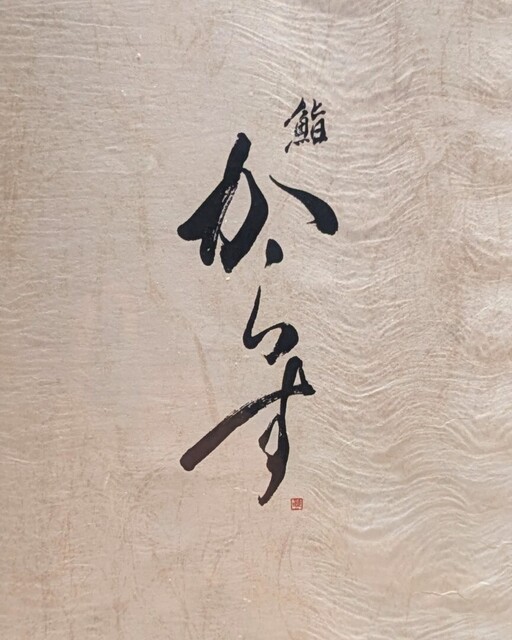 鮨
からす